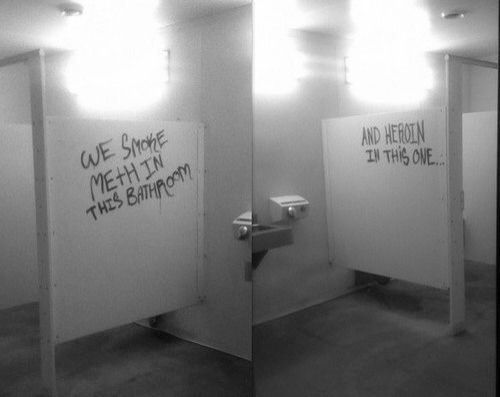 WE SMOKE
METH IN
THIS BATHROOM
AND HEROIN
IN THiS ONE...